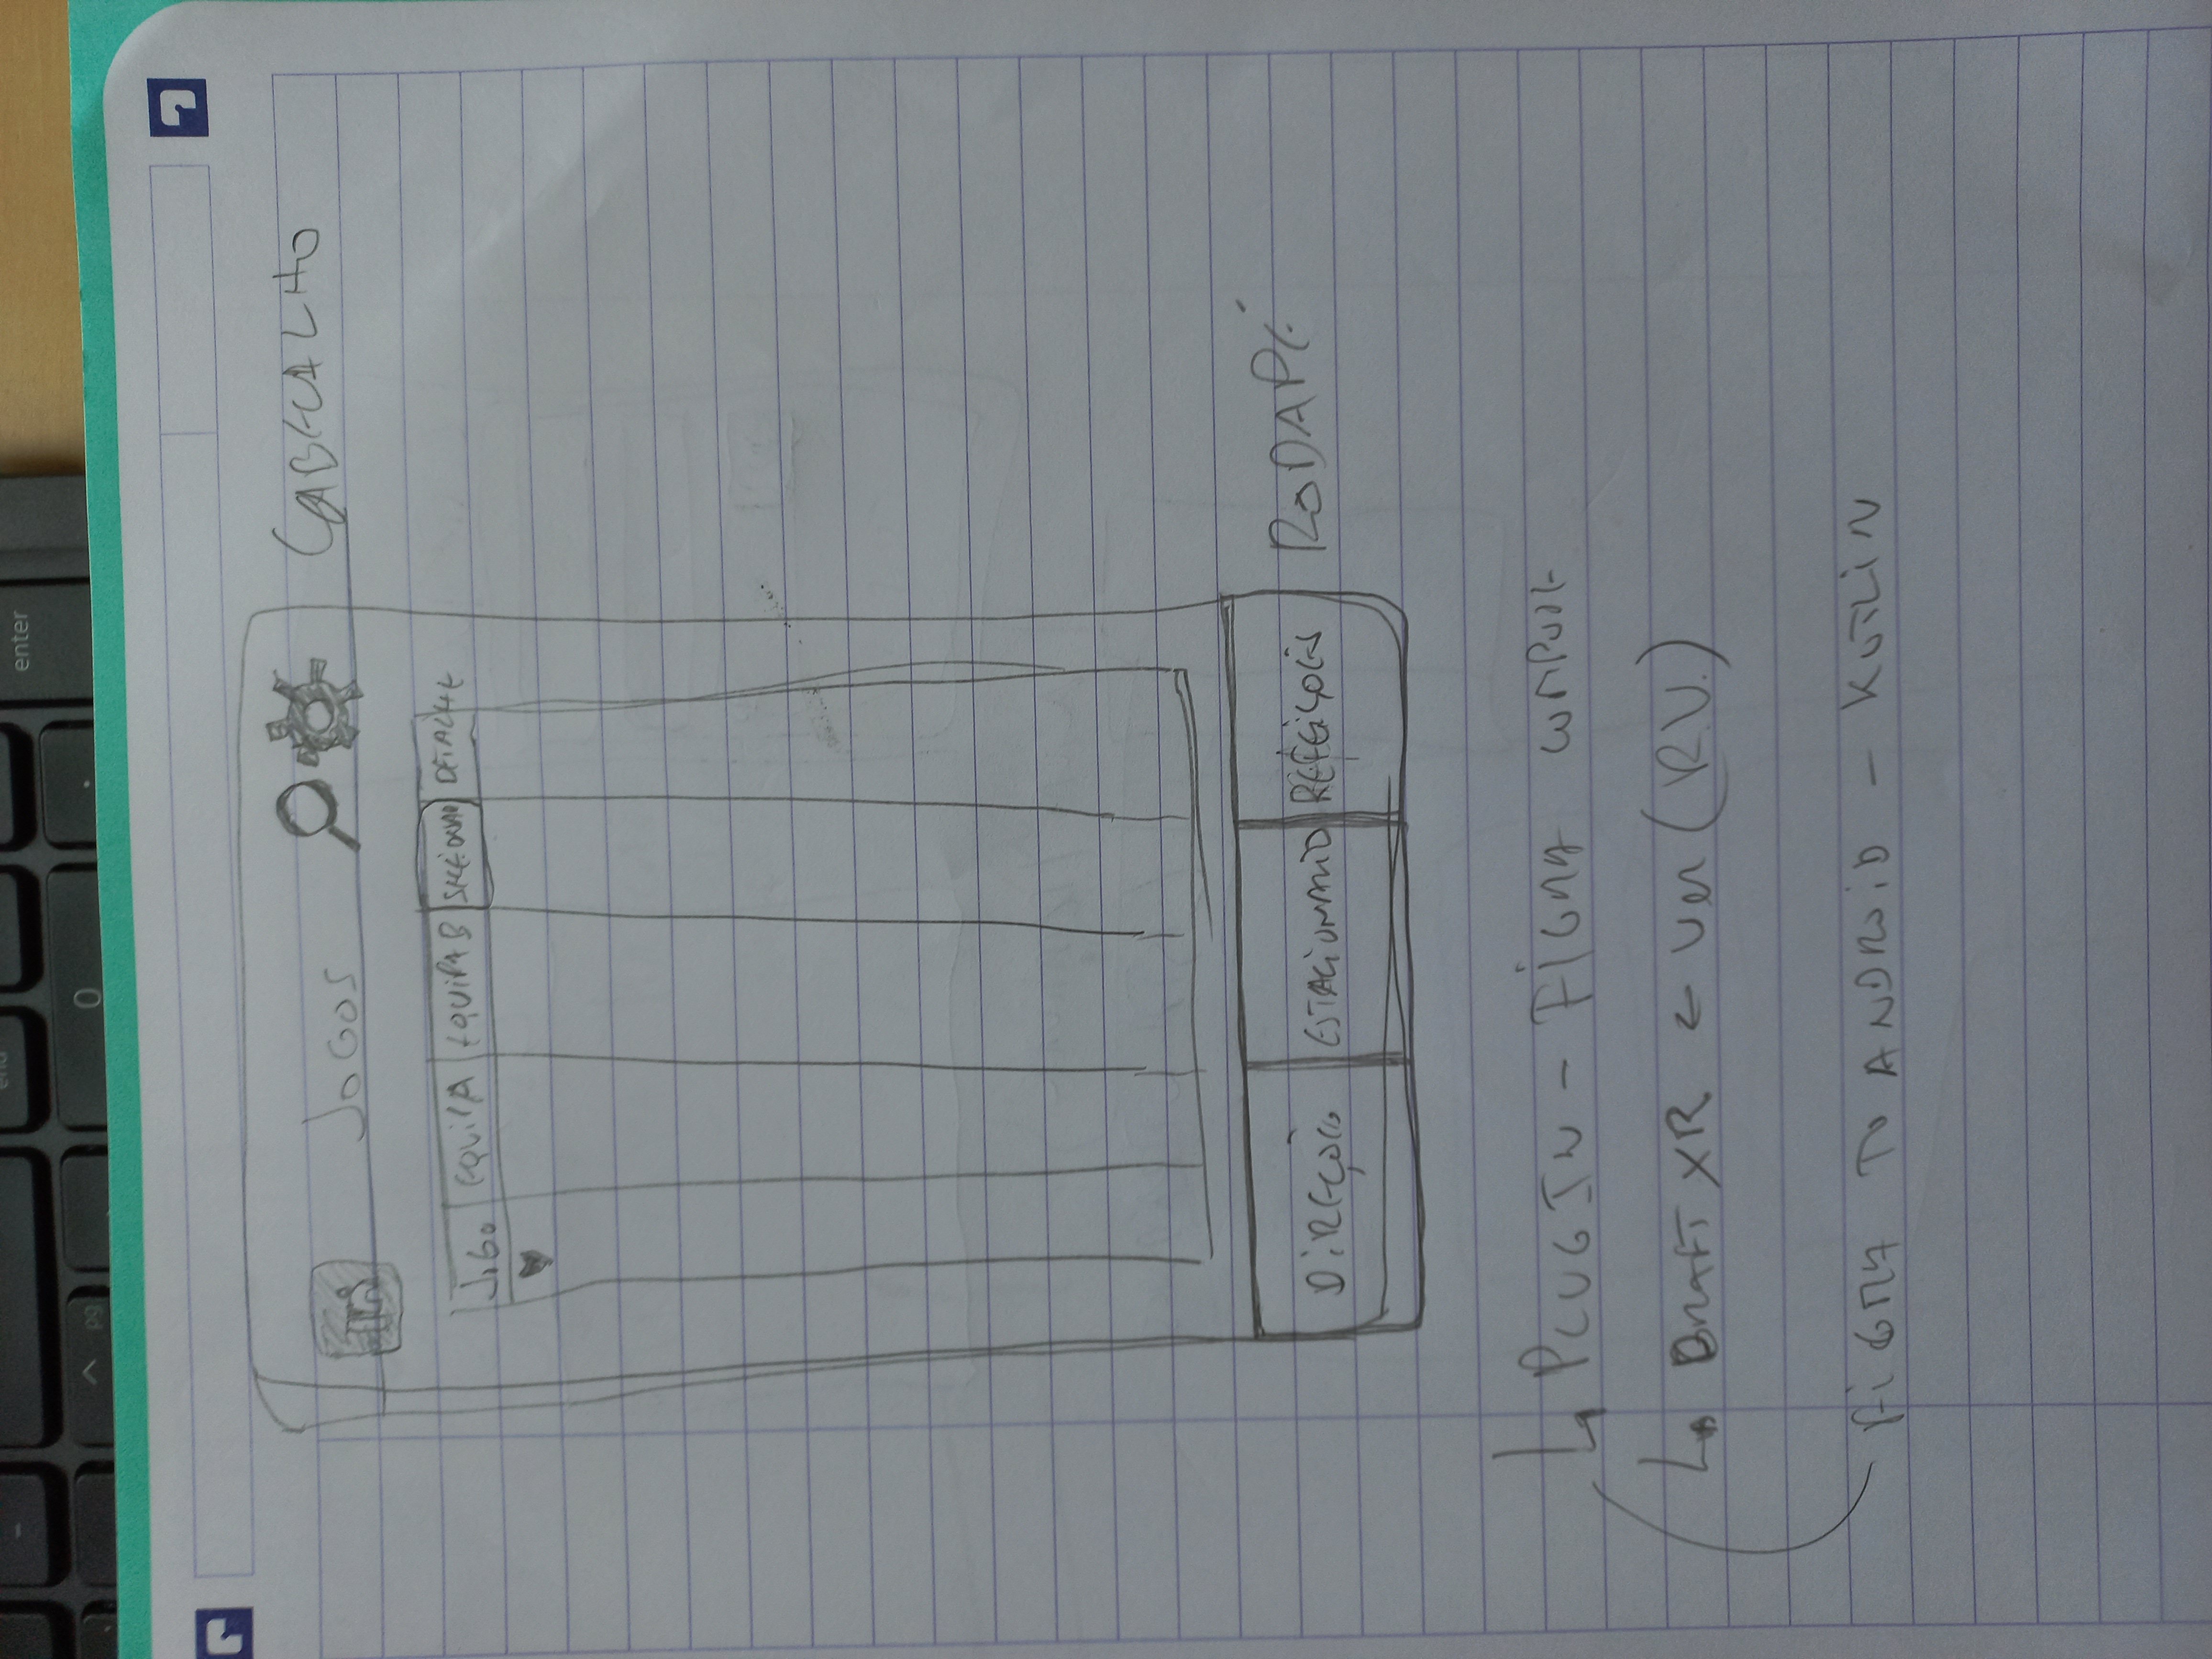 enter
end
pg
0
JOGOS
CABEÇALHO
JOGO EQUIPA EQUIPA B DETALHE
DIREÇÕES ESTACIONAMENTO REFEIÇÕES
RODAPÉ
PLUGIN - FIGMA COMPOSE
DRAFT XR ← Ver (R.V.)
FIGMA TO ANDROID - KOTLIN